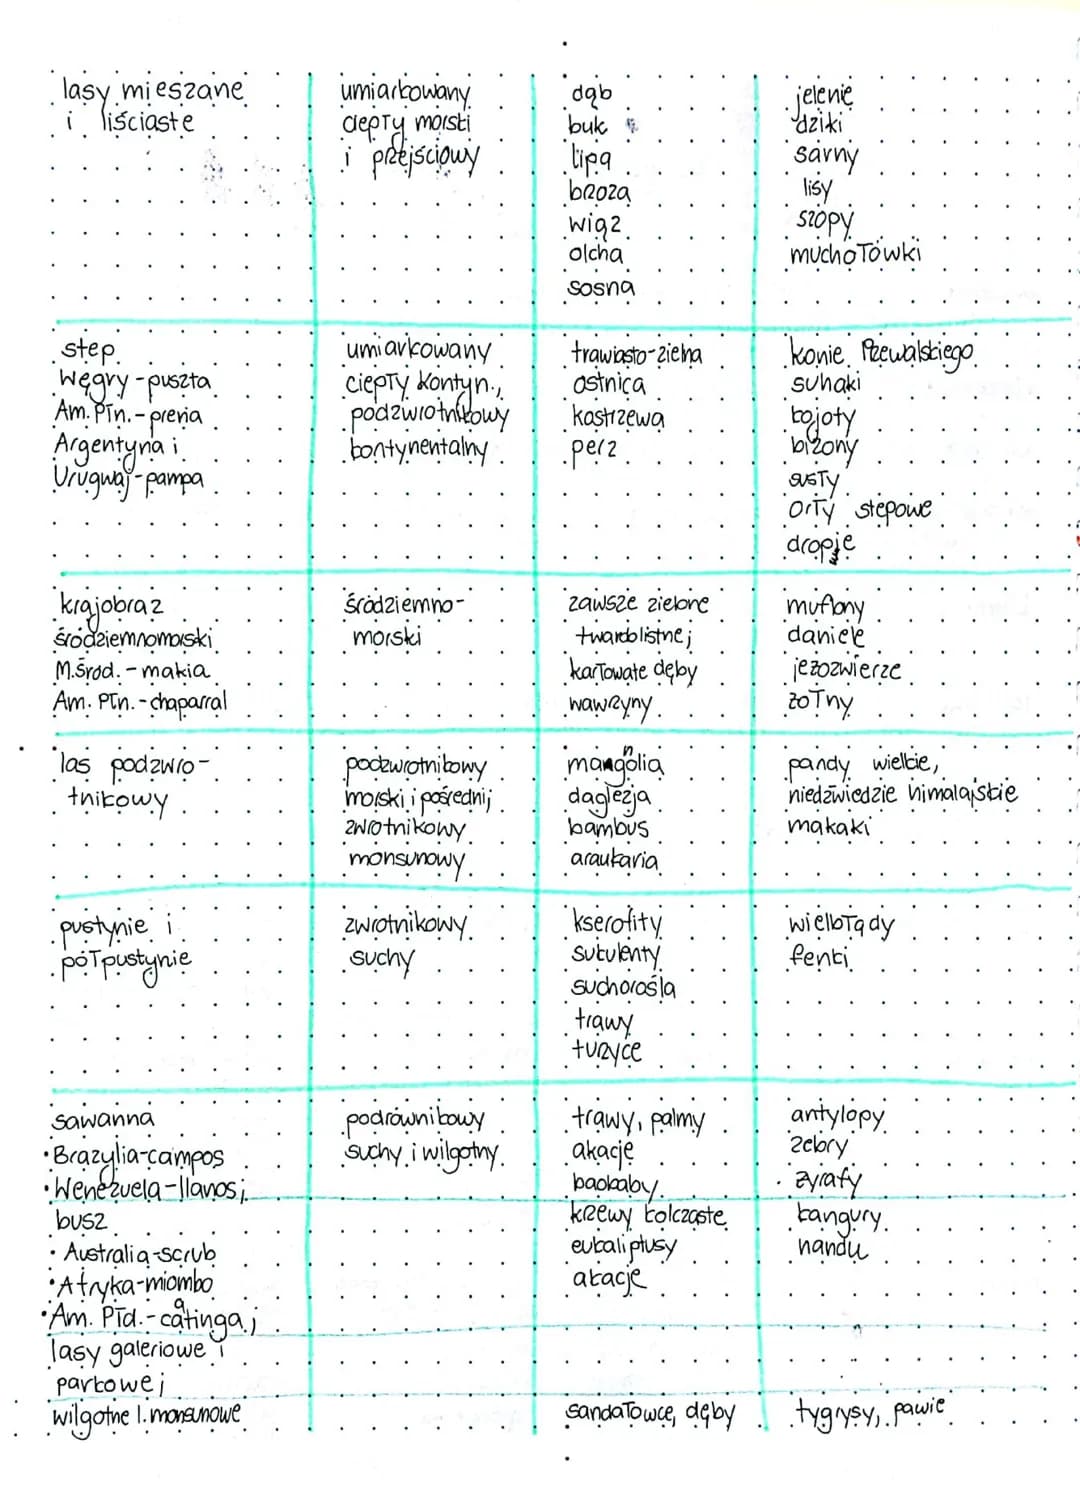 lasy mieszane
i liściaste
umiarkowany
ciepły morski
i przejściowy
dąb
buk
lipa
brzoza
wiąz
olcha
sosna
jelenie
dziki
sarny
lisy
szopy
muchołówki
step
Węgry - puszta
Am. Płn. - preria
Argentyna i
Urugwaj - pampa
umiarkowany
ciepły kontyn.,
podzwrotnikowy
kontynentalny
trawiasto-zielna
ostnica
kostrzewa
perz
konie Przewalskiego
suhaki
kojoty
bizony
susły
orły stepowe
dropie
krajobraz
śródziemnomorski
M.Śród. - makia
Am. Płn. - chaparral
śródziemno-
morski
zawsze zielone
twardolistne;
karłowate dęby
wawrzyny
muflony
daniele
jeżozwierze
żołny
las podzwro-
tnikowy
podzwrotnikowy
morski i pośredni;
zwrotnikowy
monsunowy
mangolia
daglezja
bambus
araukaria
pandy wielkie,
niedźwiedzie himalajskie
makaki
pustynie i
półpustynie
zwrotnikowy
suchy
kserofity
sukulenty
suchorośla
trawy
turzyce
wielbłądy
fenki
sawanna
• Brazylia-campos
• Wenezuela-llanos;
busz
• Australia-scrub
• Afryka-miombo
• Am. Płd. - caatinga;
lasy galeriowe i
parkowe;
wilgotne l. monsunowe
podrównikowy
suchy i wilgotny
trawy, palmy
akacje
baobaby
krzewy kolczaste
eukaliptusy
akacje
sandałowce, dęby
antylopy
zebry
żyrafy
kangury
nandu
tygrysy, pawie